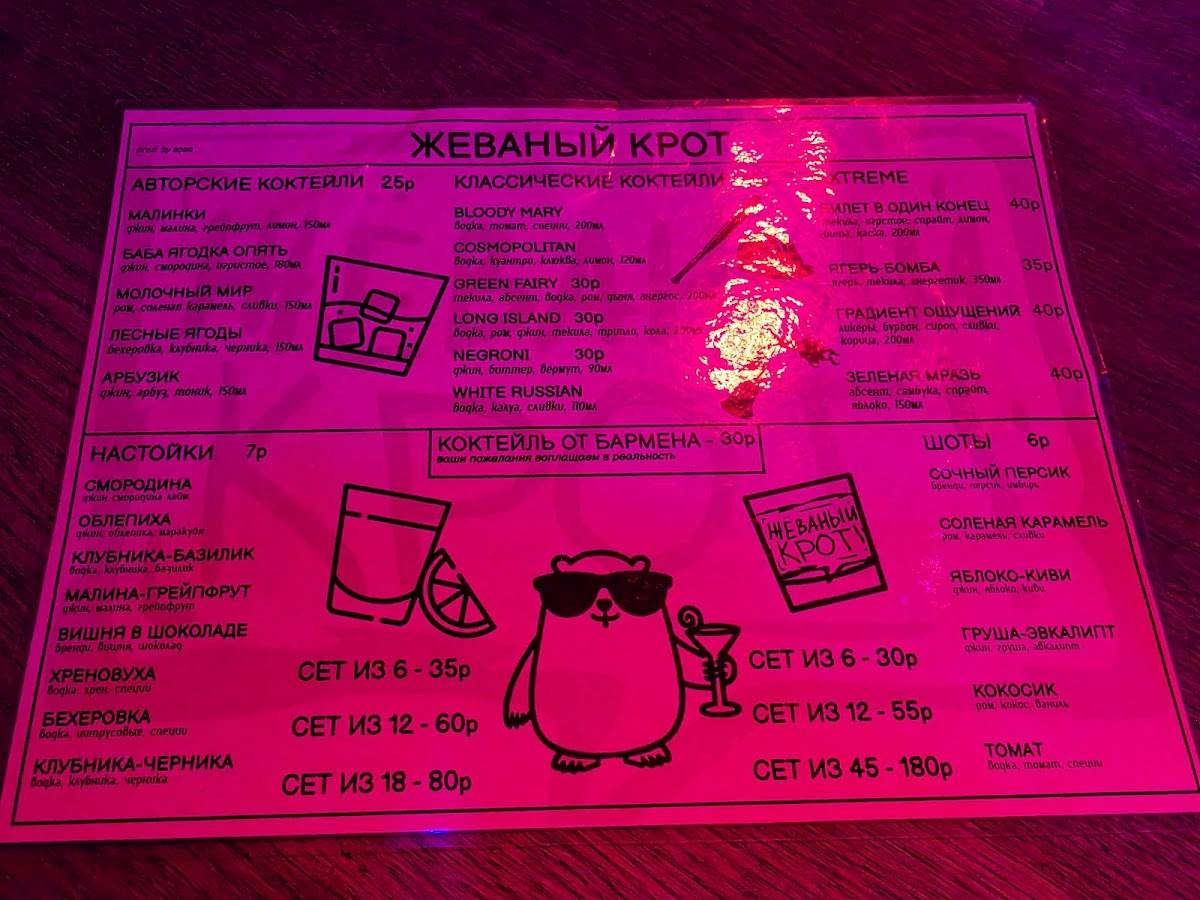 prod. by вова
ЖЕВАНЫЙ КРОТ
АВТОРСКИЕ КОКТЕЙЛИ 25р
МАЛИНКИ
джин, малина, грейпфрут, лимон, 150мл
БАБА ЯГОДКА ОПЯТЬ
джин, смородина, игристое, 180мл
МОЛОЧНЫЙ МИР
ром, соленая карамель, сливки, 150мл
ЛЕСНЫЕ ЯГОДЫ
бехеровка, клубника, черника, 150мл
АРБУЗИК
джин, арбуз, тоник, 150мл
КЛАССИЧЕСКИЕ КОКТЕЙЛИ
BLOODY MARY
водка, томат, специи, 200мл
COSMOPOLITAN
водка, куантро, клюква, лимон, 120мл
GREEN FAIRY 30р
текила, абсент, водка, ром, дыня, энергос, 200мл
LONG ISLAND 30р
водка, ром, джин, текила, трипло, кола, 200мл
NEGRONI 30р
джин, биттер, вермут, 90мл
WHITE RUSSIAN
водка, калуа, сливки, 110мл
XTREME
БИЛЕТ В ОДИН КОНЕЦ 40р
текила, игрстое, спрайт, лимон,
бита, каска, 200мл
ЯГЕРЬ-БОМБА 35р
ягерь, текила, энергетик, 350мл
ГРАДИЕНТ ОЩУЩЕНИЙ 40р
ликеры, бурбон, сироп, сливки,
корица, 200мл
ЗЕЛЕНАЯ МРАЗЬ 40р
абсент, самбука, спрайт,
яблоко, 150мл
КОКТЕЙЛЬ ОТ БАРМЕНА - 30р
ваши пожелания воплащаем в реальность
НАСТОЙКИ 7р
СМОРОДИНА
джин смородина лайм
ОБЛЕПИХА
джин, облепиха, маракуйя
КЛУБНИКА-БАЗИЛИК
водка, клубника, базилик
МАЛИНА-ГРЕЙПФРУТ
джин, малина, грейпфрут
ВИШНЯ В ШОКОЛАДЕ
бренди, вишня, шоколад
ХРЕНОВУХА
водка, хрен, специи
БЕХЕРОВКА
водка, цитрусовые, специи
КЛУБНИКА-ЧЕРНИКА
водка, клубника, черника
СЕТ ИЗ 6 - 35р
СЕТ ИЗ 12 - 60р
СЕТ ИЗ 18 - 80р
ЖЕВАНЫЙ
КРОТ
СЕТ ИЗ 6 - 30р
СЕТ ИЗ 12 - 55р
СЕТ ИЗ 45 - 180р
ШОТЫ 6р
СОЧНЫЙ ПЕРСИК
бренди, персик, имбирь
СОЛЕНАЯ КАРАМЕЛЬ
ром, карамель, сливки
ЯБЛОКО-КИВИ
джин, яблоко, киви
ГРУША-ЭВКАЛИПТ
джин, груша, эвкалипт
КОКОСИК
ром, кокос, ваниль
ТОМАТ
водка, томат, специи